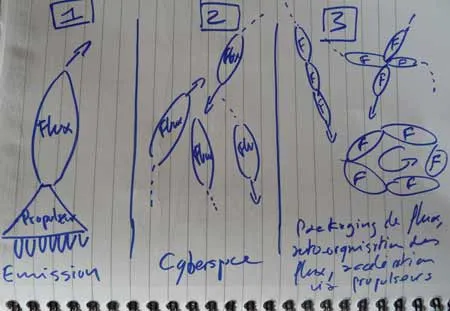 1
Flux
Propulseur
Emission
2
Flux
Flux
Flux
Flu
Cyberspce
3
F
F
F
F
F
F
F
F
F
F
F
F
Packaging de flux,
auto-organisation des
flux, accélération
via propulseurs